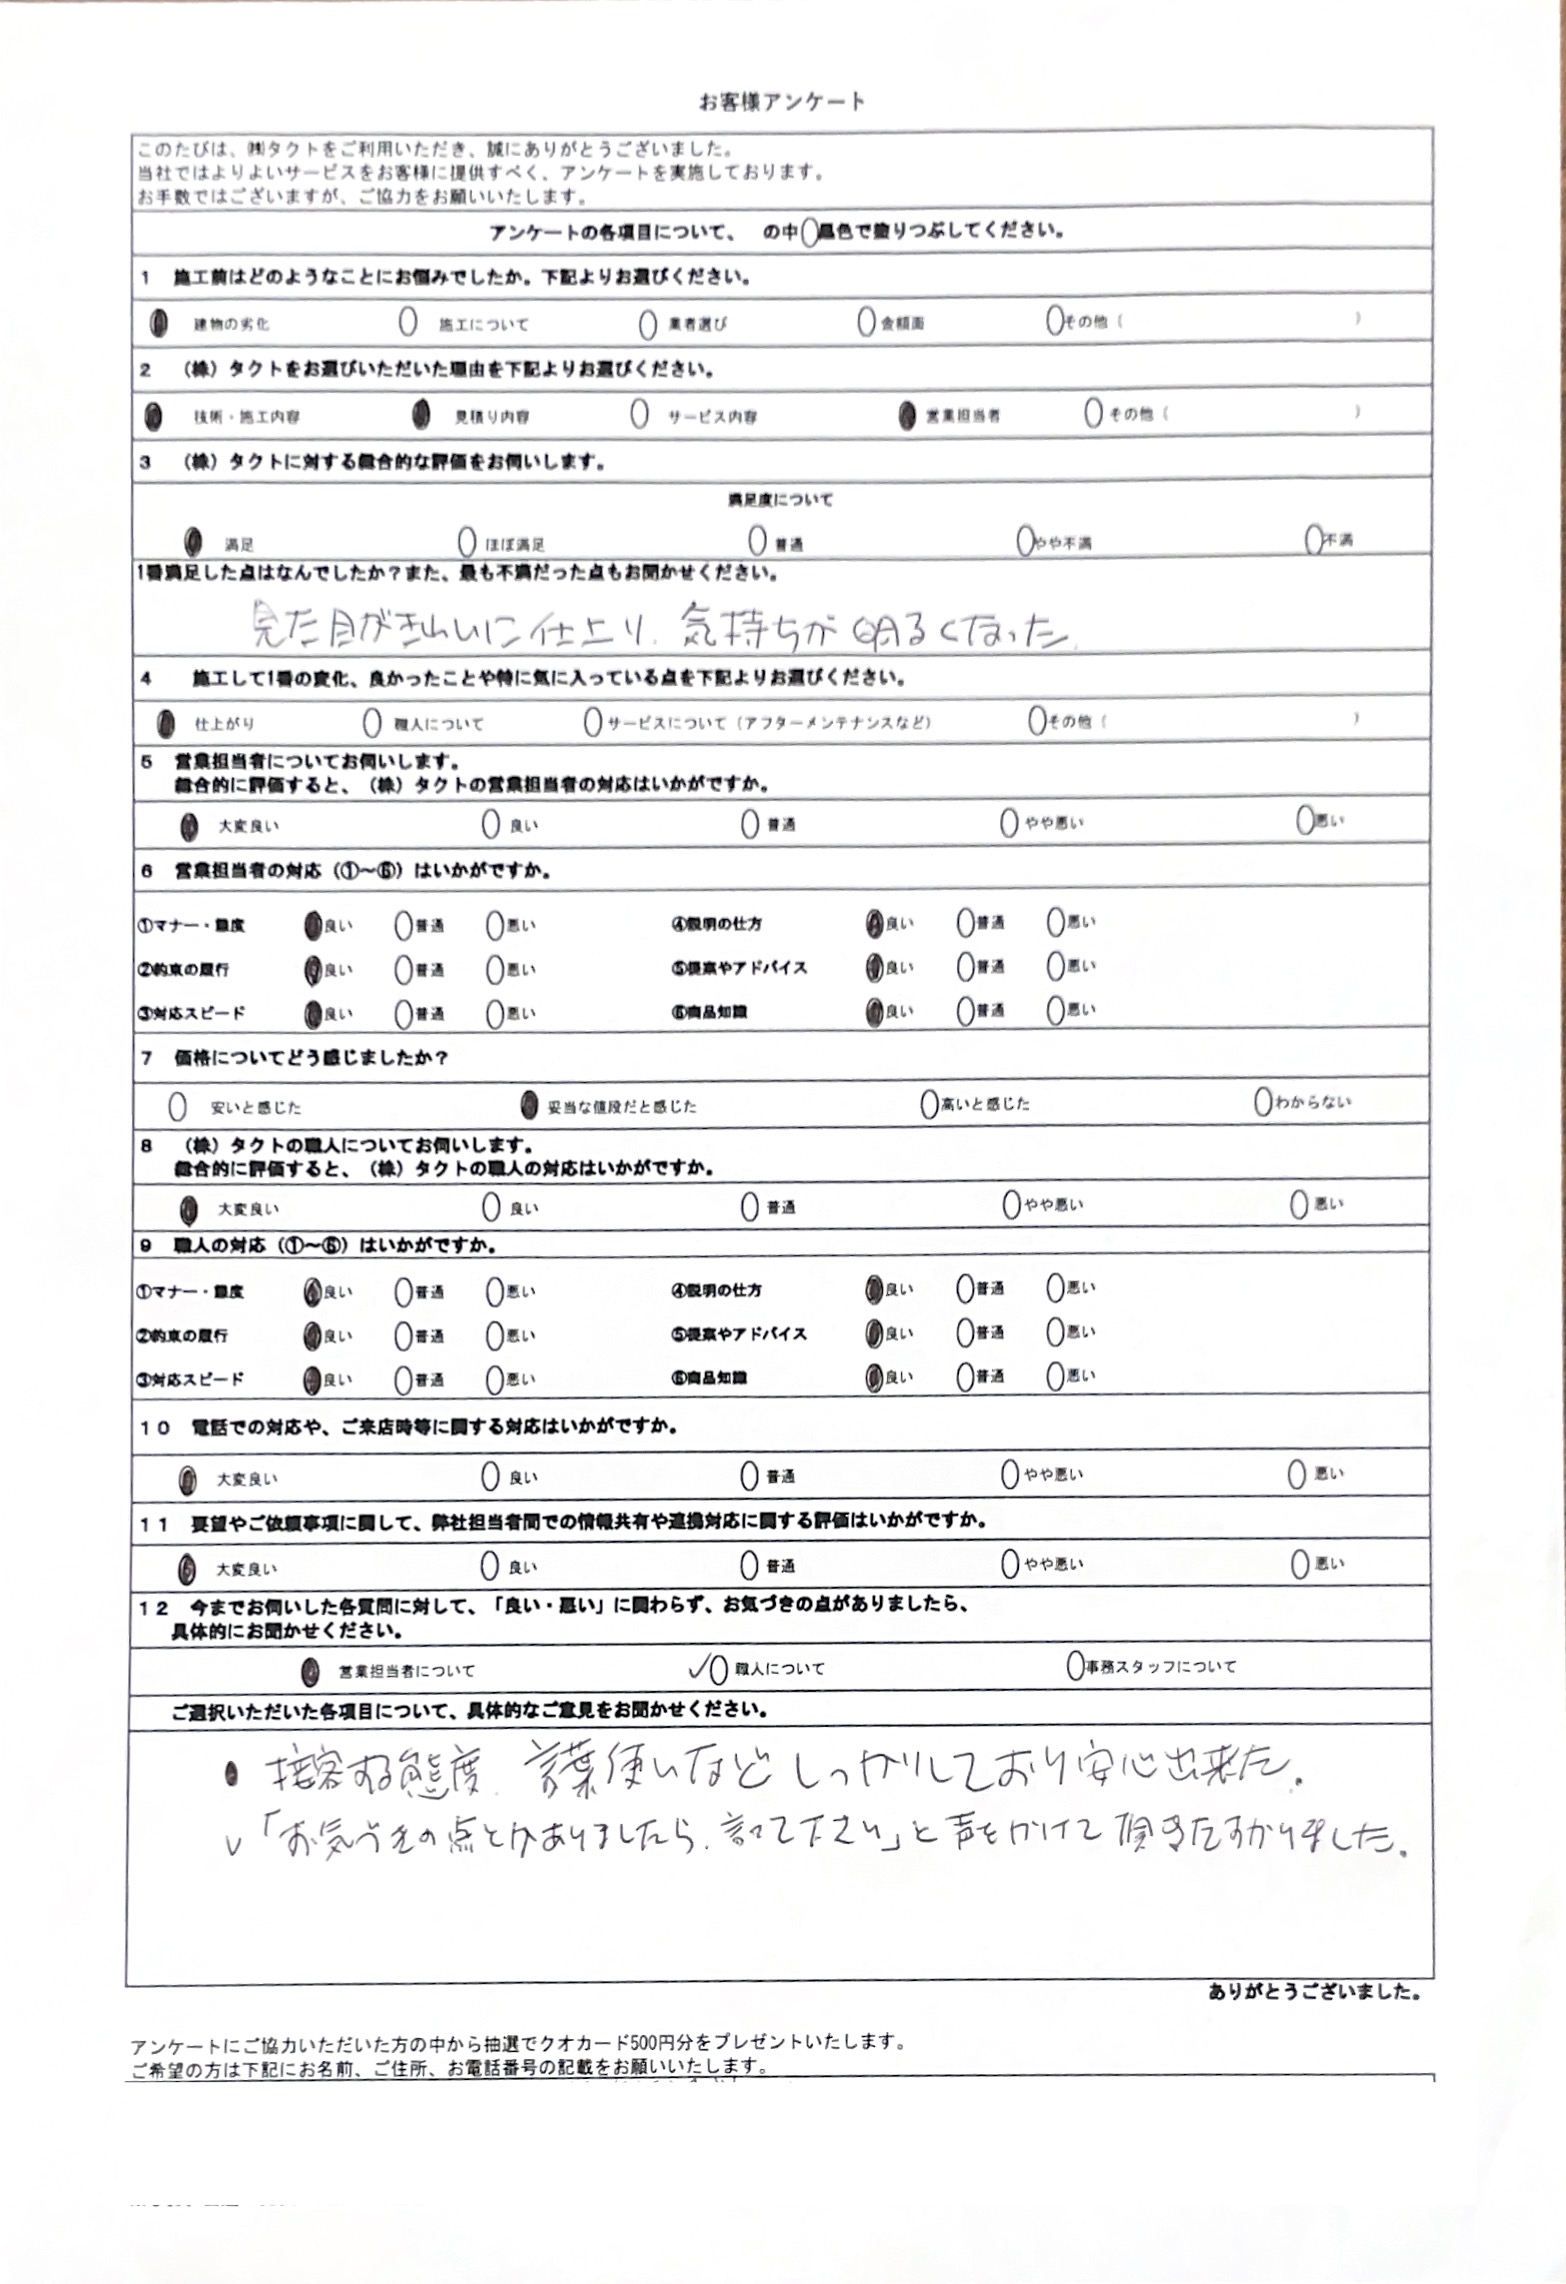 お客様アンケート
このたびは、㈱タクトをご利用いただき、誠にありがとうございました。
当社ではよりよいサービスをお客様に提供すべく、アンケートを実施しております。
お手数ではございますが、ご協力をお願いいたします。
アンケートの各項目について、 の中 黒色で塗りつぶしてください。
1 施工前はどのようなことにお悩みでしたか。下記よりお選びください。
建物の劣化 施工について 業者選び 金額面 その他（ ）
2 （株）タクトをお選びいただいた理由を下記よりお選びください。
技術・施工内容 見積り内容 サービス内容 営業担当者 その他（ ）
3 （株）タクトに対する総合的な評価をお伺いします。
満足度について
満足 ほぼ満足 普通 やや不満 不満
1番満足した点はなんでしたか？また、最も不満だった点もお聞かせください。
見た目がきれいに仕上り、気持ちが明るくなった。
4 施工して1番の変化、良かったことや特に気に入っている点を下記よりお選びください。
仕上がり 職人について サービスについて（アフターメンテナンスなど） その他（ ）
5 営業担当者についてお伺いします。
総合的に評価すると、（株）タクトの営業担当者の対応はいかがですか。
大変良い 良い 普通 やや悪い 悪い
6 営業担当者の対応（①～⑥）はいかがですか。
①マナー・態度 良い 普通 悪い ④説明の仕方 良い 普通 悪い
②約束の履行 良い 普通 悪い ⑤提案やアドバイス 良い 普通 悪い
③対応スピード 良い 普通 悪い ⑥商品知識 良い 普通 悪い
7 価格についてどう感じましたか？
安いと感じた 妥当な値段だと感じた 高いと感じた わからない
8 （株）タクトの職人についてお伺いします。
総合的に評価すると、（株）タクトの職人の対応はいかがですか。
大変良い 良い 普通 やや悪い 悪い
9 職人の対応（①～⑥）はいかがですか。
①マナー・態度 良い 普通 悪い ④説明の仕方 良い 普通 悪い
②約束の履行 良い 普通 悪い ⑤提案やアドバイス 良い 普通 悪い
③対応スピード 良い 普通 悪い ⑥商品知識 良い 普通 悪い
10 電話での対応や、ご来店時等に関する対応はいかがですか。
大変良い 良い 普通 やや悪い 悪い
11 要望やご依頼事項に関して、弊社担当者間での情報共有や連携対応に関する評価はいかがですか。
大変良い 良い 普通 やや悪い 悪い
12 今までお伺いした各質問に対して、「良い・悪い」に関わらず、お気づきの点がありましたら、
具体的にお聞かせください。
営業担当者について ✓ 職人について 事務スタッフについて
ご選択いただいた各項目について、具体的なご意見をお聞かせください。
● 接客する態度、言葉使いなどしっかりしており安心出来た。
✓「お気づきの点とかありましたら、言って下さい」と声をかけて頂きたすかりました。
ありがとうございました。
アンケートにご協力いただいた方の中から抽選でクオカード500円分をプレゼントいたします。
ご希望の方は下記にお名前、ご住所、お電話番号の記載をお願いいたします。